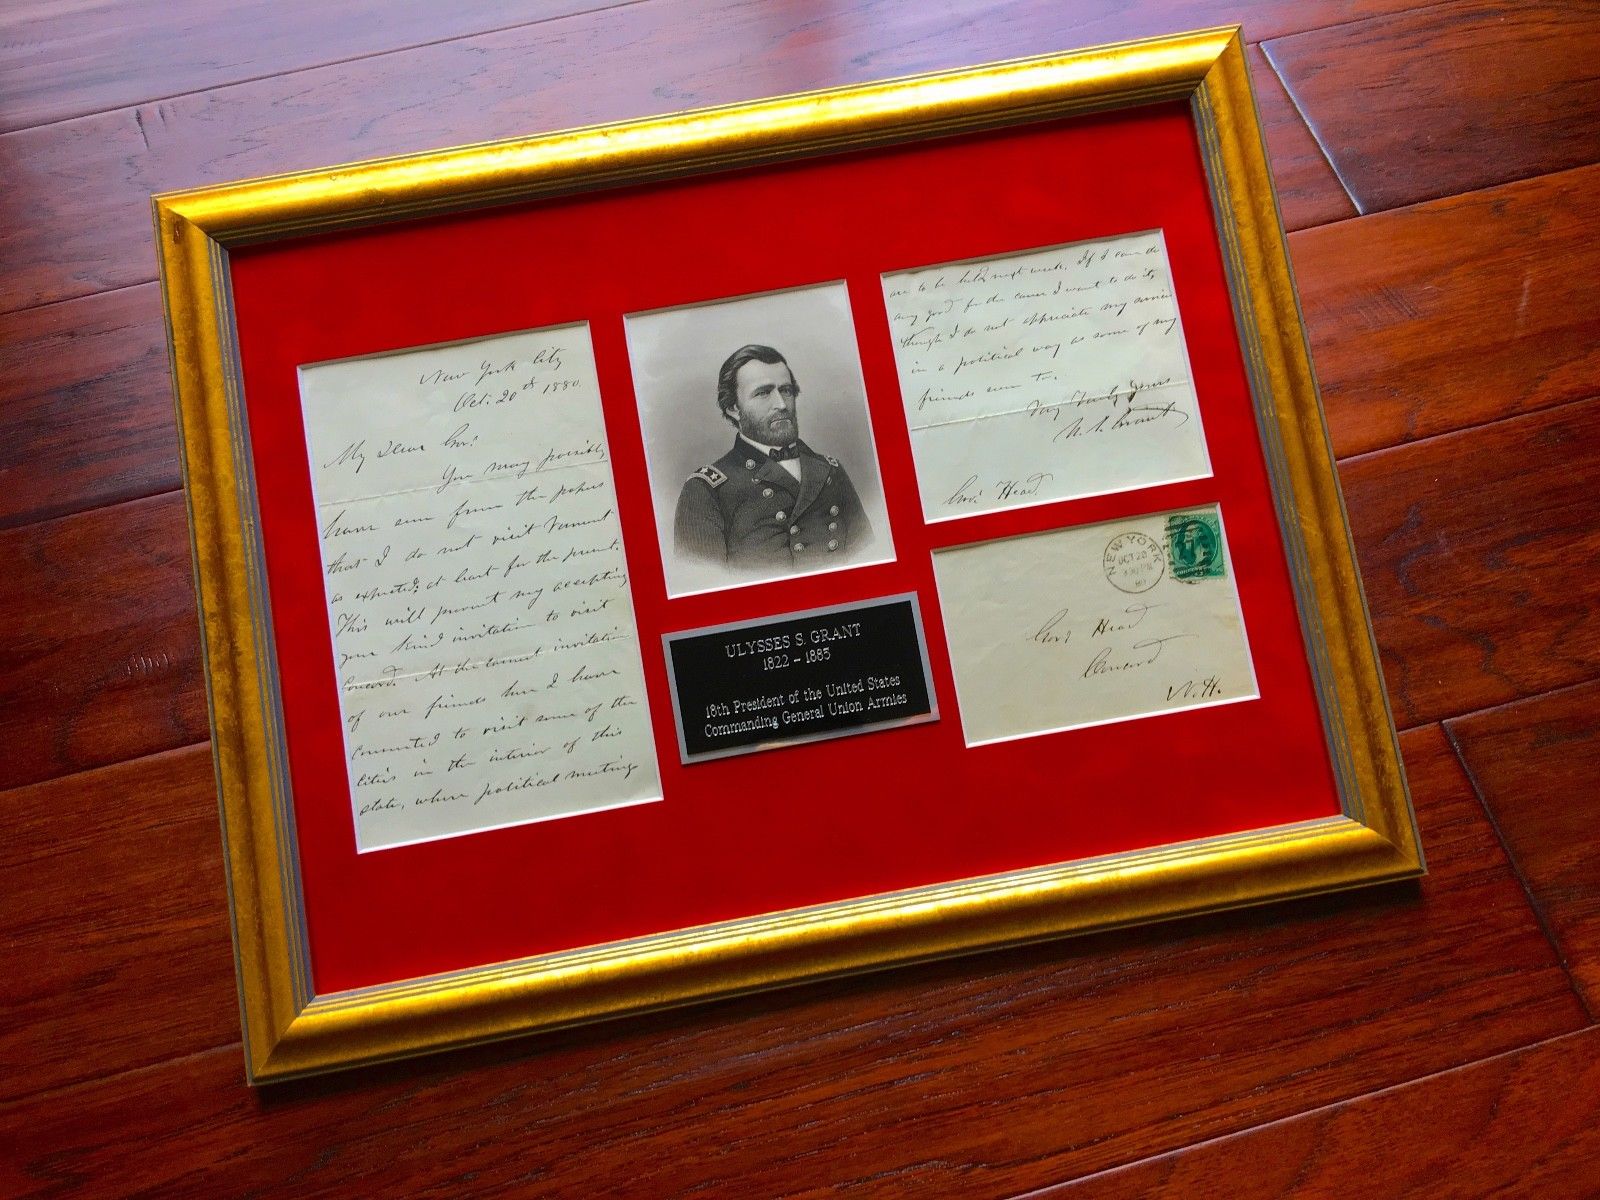 New York City
Oct. 20th 1880.
My Dear Gov.
You may possibly
have seen from the papers
that I do not visit Vermont
as expected, at least for the present.
This will prevent my accepting
your kind invitation to visit
Concord. At the earnest invitation
of our friends here I have
consented to visit some of the
Cities in the interior of this
state, where political meetings
ULYSSES S. GRANT
1822 - 1885
18th President of the United States
Commanding General Union Armies
are to be held next week. If I can do
any good for the cause I want to do it,
though I do not appreciate my services
in a political way as some of my
friends seem to.
Very Truly Yours
U. S. Grant
Gov. Head
NEW YORK
OCT 20
80
Gov. Head
Concord
N.H.